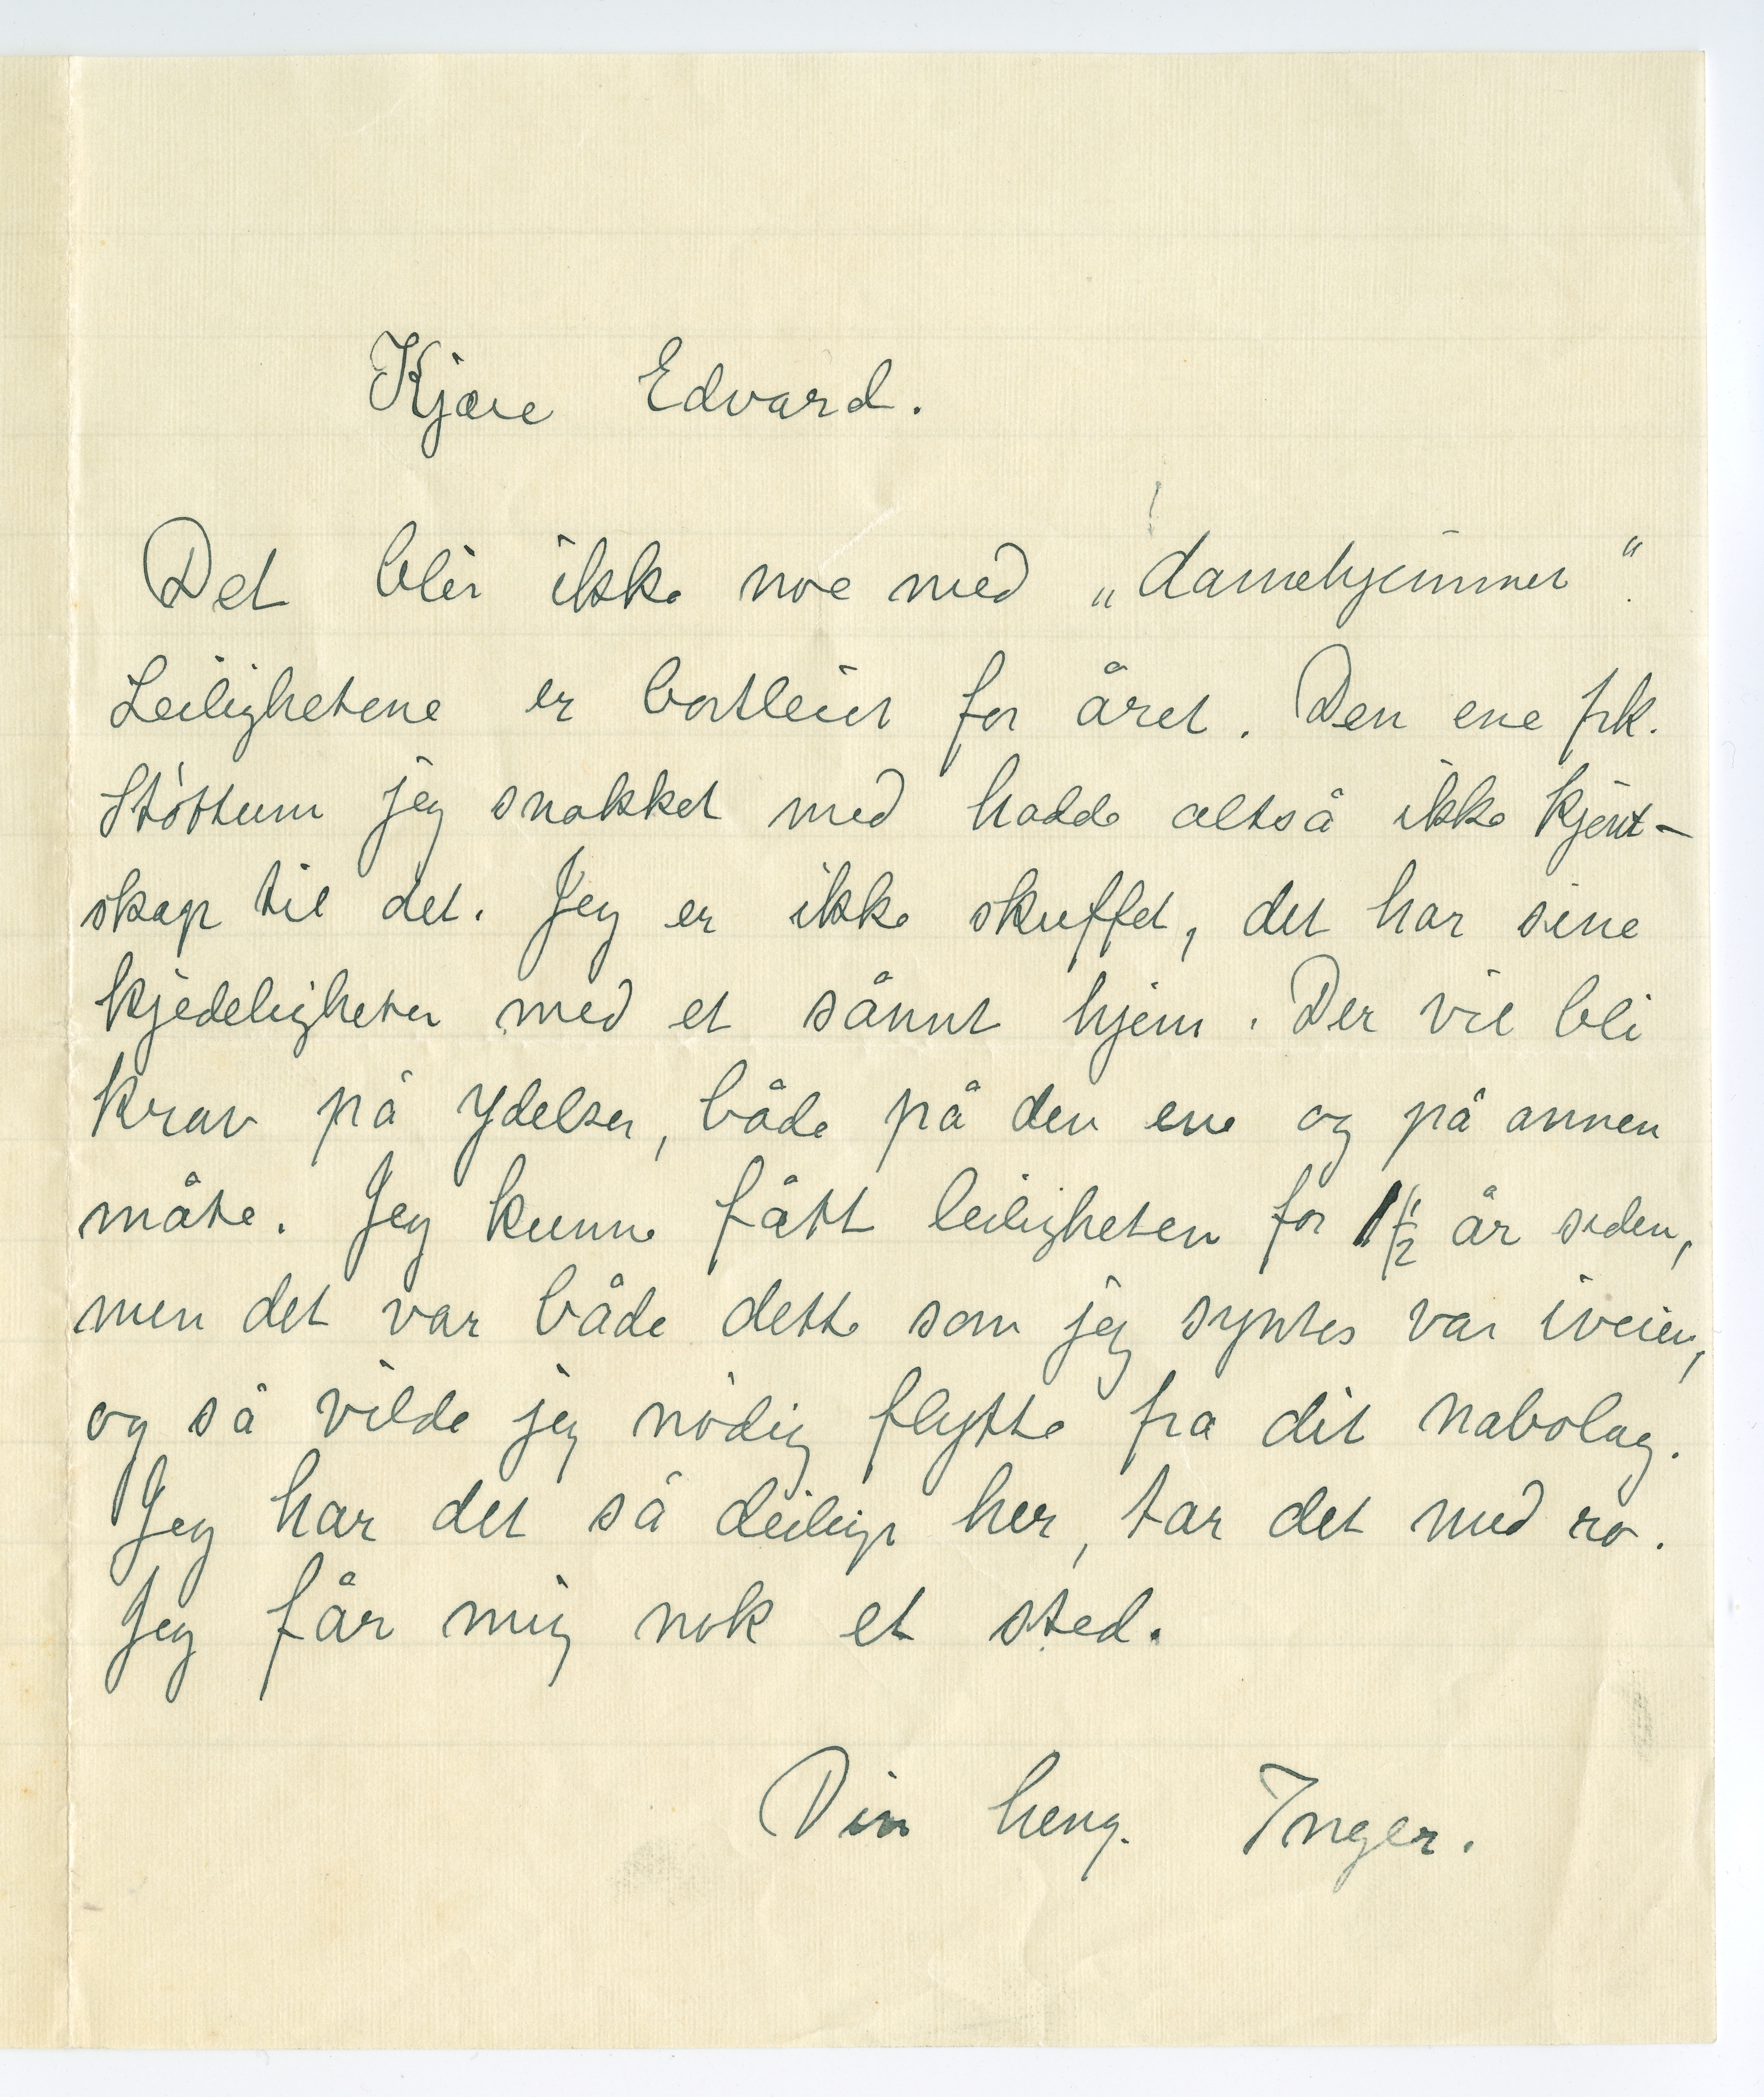 Kjære Edvard.
Det blir ikke noe med „damehjemmet“.
Leilighetene er bortleiet for året. Den ene frk.
Stöttum jeg snakket med hadde altså ikke kjent-
skap til det. Jeg er ikke skuffet, det har sine
kjedeligheter med et sånnt hjem. Der vil bli
krav på ydelser, både på den ene og på annen
måte. Jeg kunne fått leiligheten for 1 1/2 år siden,
men det var både dette som jeg syntes var iveien,
og så vilde jeg nödig flytte fra dit nabolag.
Jeg har det så deilig her, tar det med ro.
Jeg får mig nok et sted.
Din heng. Inger.